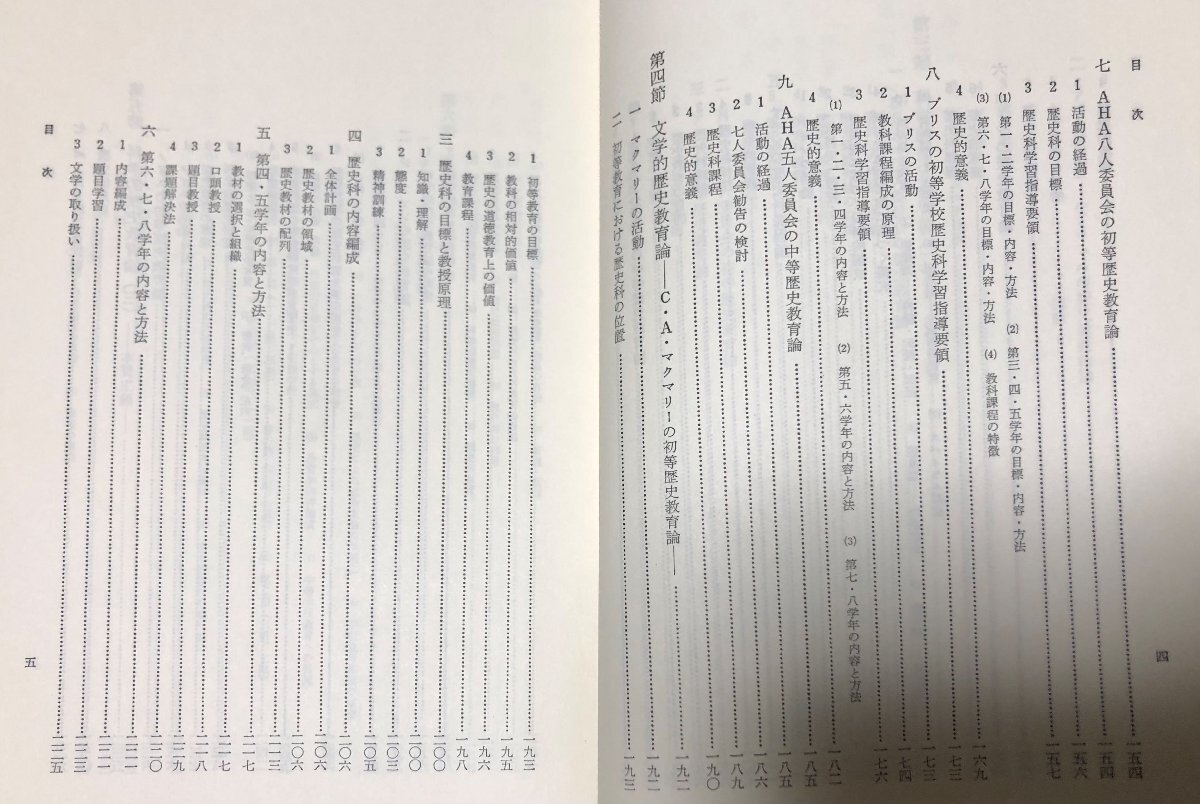 目 次
七 AHA八人委員会の初等歴史教育論……一五四
1 活動の経過……一五四
2 歴史科の目標……一五六
3 歴史科学習指導要領……一五七
(1) 第一・二学年の目標・内容・方法 (2) 第三・四・五学年の目標・内容・方法
(3) 第六・七・八学年の目標・内容・方法 (4) 教科課程の特徴
4 歴史的意義……一六九
八 ブリスの初等学校歴史科学習指導要領……一七三
1 ブリスの活動……一七三
2 教科課程編成の原理……一七四
3 歴史科学習指導要領……一七六
(1) 第一・二・三・四学年の内容と方法 (2) 第五・六学年の内容と方法 (3) 第七・八学年の内容と方法
4 歴史的意義……一八二
九 AHA五人委員会の中等歴史教育論……一八五
1 活動の経過……一八五
2 七人委員会勧告の検討……一八六
3 歴史科課程……一八九
4 歴史的意義……一九〇
第四節 文学的歴史教育論――C・A・マクマリーの初等歴史教育論――……一九二
一 マクマリーの活動……一九二
二 初等教育における歴史科の位置……一九三
四
1 初等教育の目標……一九三
2 教科の相対的価値……一九五
3 歴史の道徳教育上の価値……一九六
4 教育課程……一九八
三 歴史科の目標と教授原理……一九八
1 知識・理解……二〇〇
2 態度……二〇三
3 精神訓練……二〇五
四 歴史科の内容編成……二〇六
1 全体計画……二〇六
2 歴史教材の領域……二〇六
3 歴史教材の配列……二一三
五 第四・五学年の内容と方法……二一七
1 教材の選択と組織……二一七
2 口頭教授……二一八
3 題目教授……二一九
4 課題解決法……二二〇
六 第六・七・八学年の内容と方法……二二一
1 内容編成……二二一
2 題目学習……二二三
3 文学の取り扱い……二二五
目 次
五